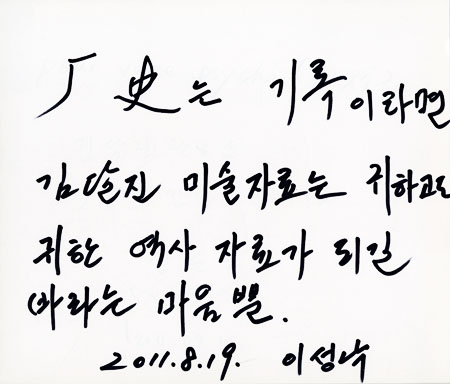 厂史는 기록이라면
김달진 미술자료는 귀하고도
귀한 역사 자료가 되길
바라는 마음뿐.
2011.8.19. 이성낙